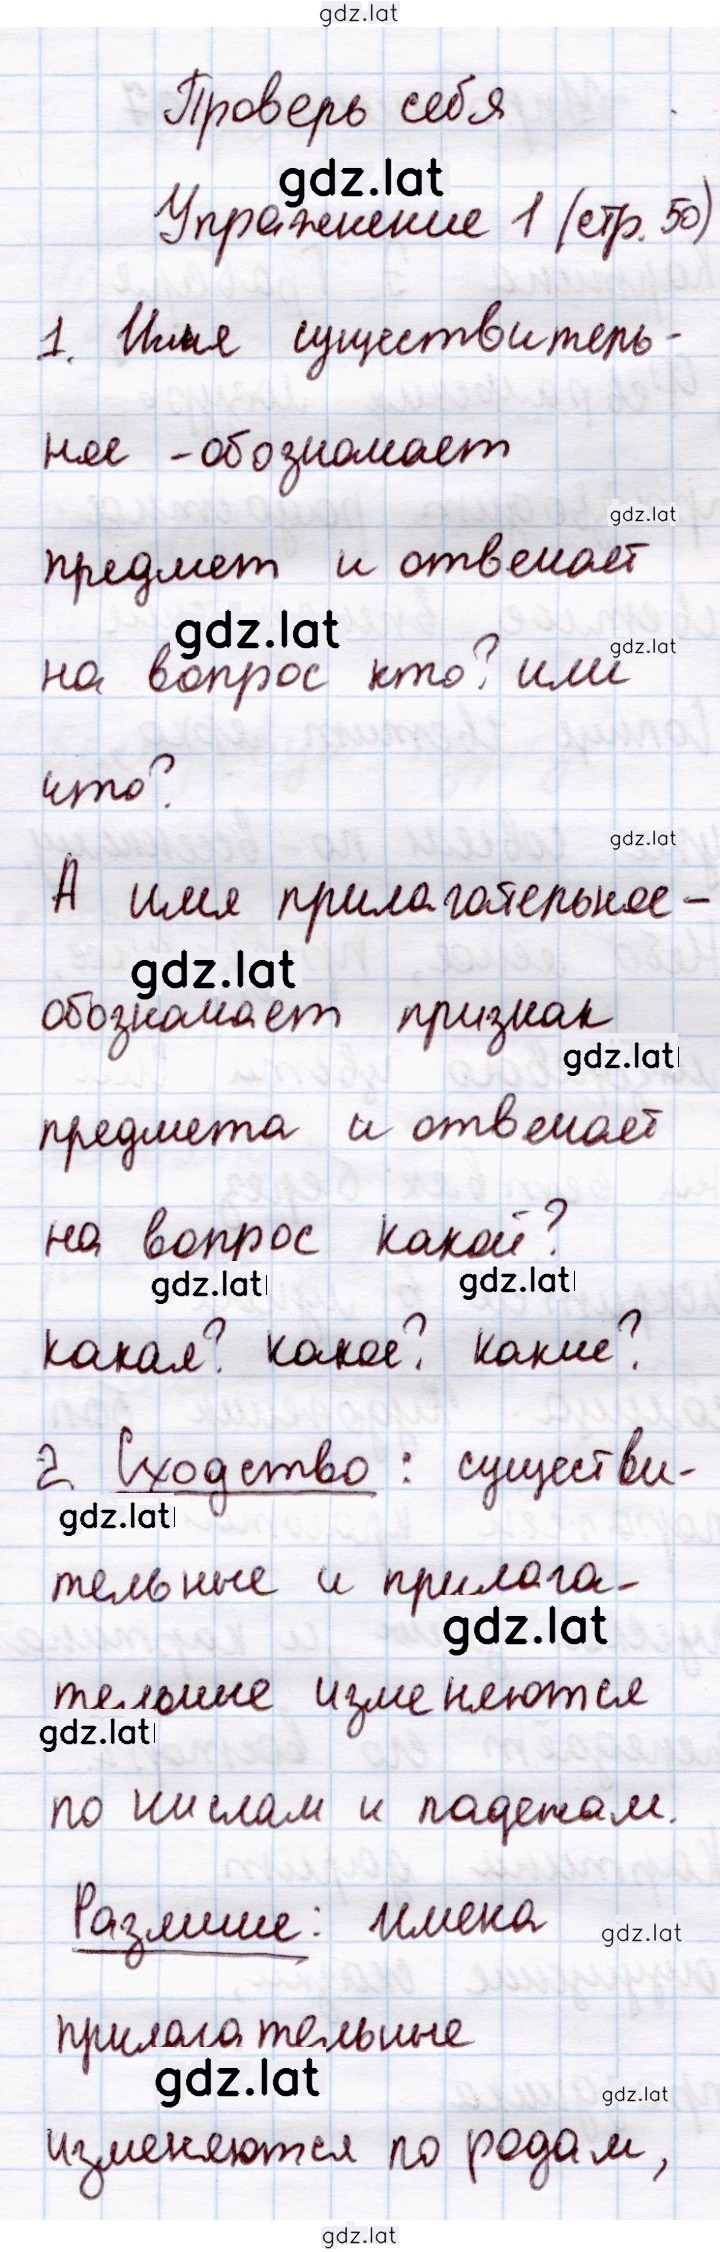 gdz.lat
Проверь себя
gdz.lat
Упражнение 1 (стр. 50)
1. Имя существитель-
ное - обозначает
gdz.lat
предмет и отвечает
gdz.lat
на вопрос кто? или
gdz.lat
что?
gdz.lat
А имя прилагательное -
gdz.lat
обозначает признак
gdz.lat
предмета и отвечает
на вопрос какой?
gdz.lat gdz.lat
какая? какое? какие?
2. Сходство: существи-
gdz.lat
тельные и прилага-
gdz.lat
тельные изменяются
gdz.lat
по числам и падежам.
Различие: имена
gdz.lat
прилагательные
gdz.lat
gdz.lat
изменяются по родам,
gdz.lat